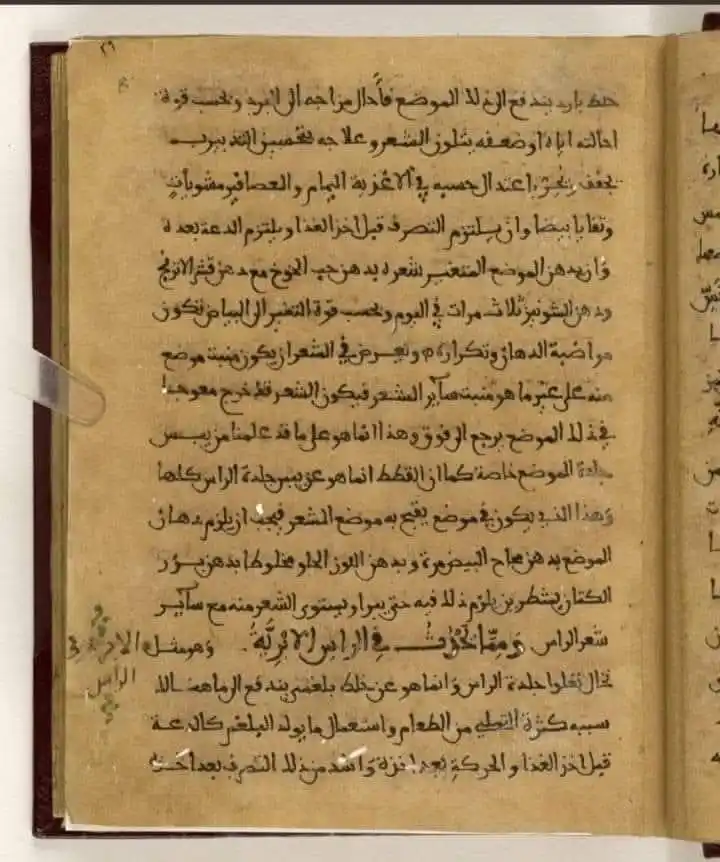 ٢٦
خلط بارد يندفع الى ذلك الموضع فأحال مزاجه الى البرد وبحسب قوة
احالته اياه او ضعفه يتلون الشعر وعلاجه بتحسين التدبير
بجفف اعتدال حسبه في الأغذية اليمام والعصافير مشويات
وتقايا بيضا وان يلتزم التصرف قبل اخذ الغذا ويلتزم الدعة بعده
وان يدهن الموضع المتغير شعره بدهن حب الخوخ مع دهن قشر الاترنج
ودهن الشونيز ثلاث مرات في اليوم وبحسب قوة التغير الى البياض تكون
مواضبة الدهان وتكراره ويعرض في الشعر ان يكون منبته موضع
منه على غير ما هو منبت ساير الشعر فيكون الشعر قط خرج معوجا
في ذلك الموضع يرجع الى فوق وهذا انما هو على ما قد علمنا من يبس
جلدة الموضع خاصة كما ان القطط انما هو عن يبس جلدة الراس كلها
وهذا الذي يكون في موضع يقبح به موضع الشعر فيجب ان يلزم دهان
الموضع بدهن محاح البيض مرة وبدهن اللوز الحلو مخلوطا بدهن بزر
الكتان بشطرين يلزم ذلك فيه حتى يبرا ويستوى الشعر منه مع ساير
شعر الراس ومما يحدث في الراس الابرية وهو مثل
نخال تعلوا جلدة الراس وانما هو عن خلط بلغمى يندفع الى ما هنالك
سببه كثرة التملي من الطعام واستعمال ما يولد البلغم كالدعة
قبل اخذ الغذا والحركة بعد اخذه واشد من ذلك التصرف بعد اخذ
الابرية في
الراس